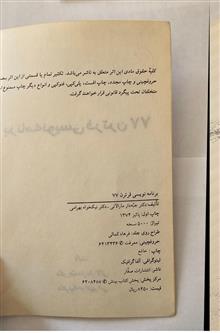 کلیهٔ حقوق مادی این اثر متعلق به ناشر می‌باشد. تکثیر تمام یا قسمتی از این اثر
حروفچینی و چاپ مجدد، چاپ افست، پلی‌کپی، فتوکپی و انواع دیگر چاپ ممنوع
متخلفان تحت پیگرد قانونی قرار خواهند گرفت.
برنامه نویسی فرترن ۷۷
برنامه نویسی فرترن ۷۷
تألیف: دکتر جبه‌دار مارالانی - دکتر نیکخواه بهرامی
چاپ اول: پائیز ۱۳۷۴
تیراژ: ۵۰۰۰ نسخه
طراح روی جلد: فرهاد کمالی
حروفچینی: معرفت ۶۲۰۲۳۳۶
چاپ:
لیتوگرافی: آفتابگرافیک
ناشر: انتشارات صفّار
مرکز پخش: پخش کتاب بینش ۶۴۰۸۴۸۷
قیمت: ۸۲۵۰ ریال